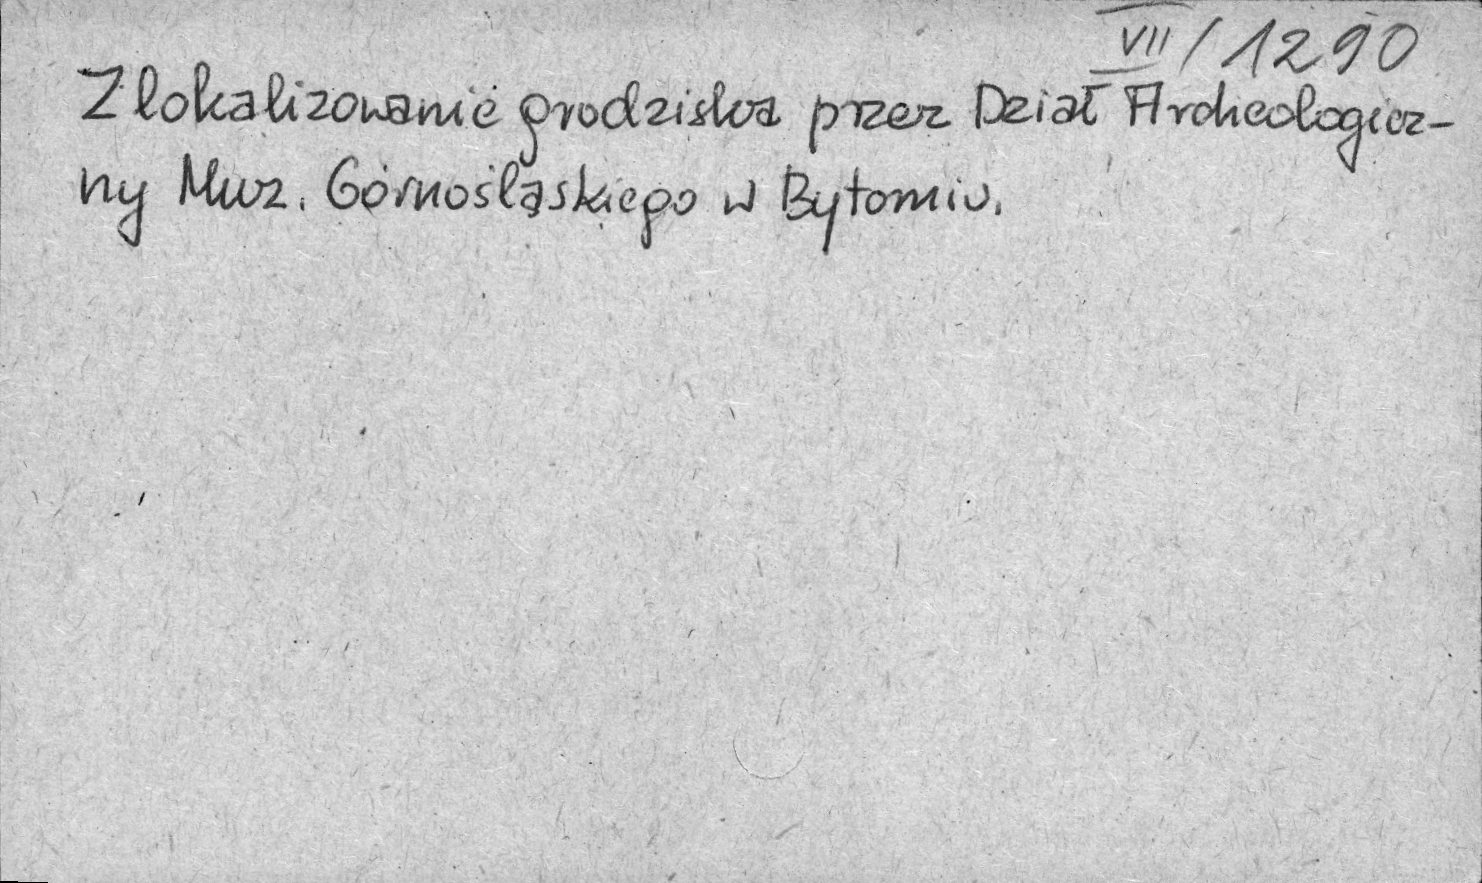 VII/1290
Zlokalizowanie grodziska przez Dział Archeologicz-
ny Muz. Górnośląskiego w Bytomiu.